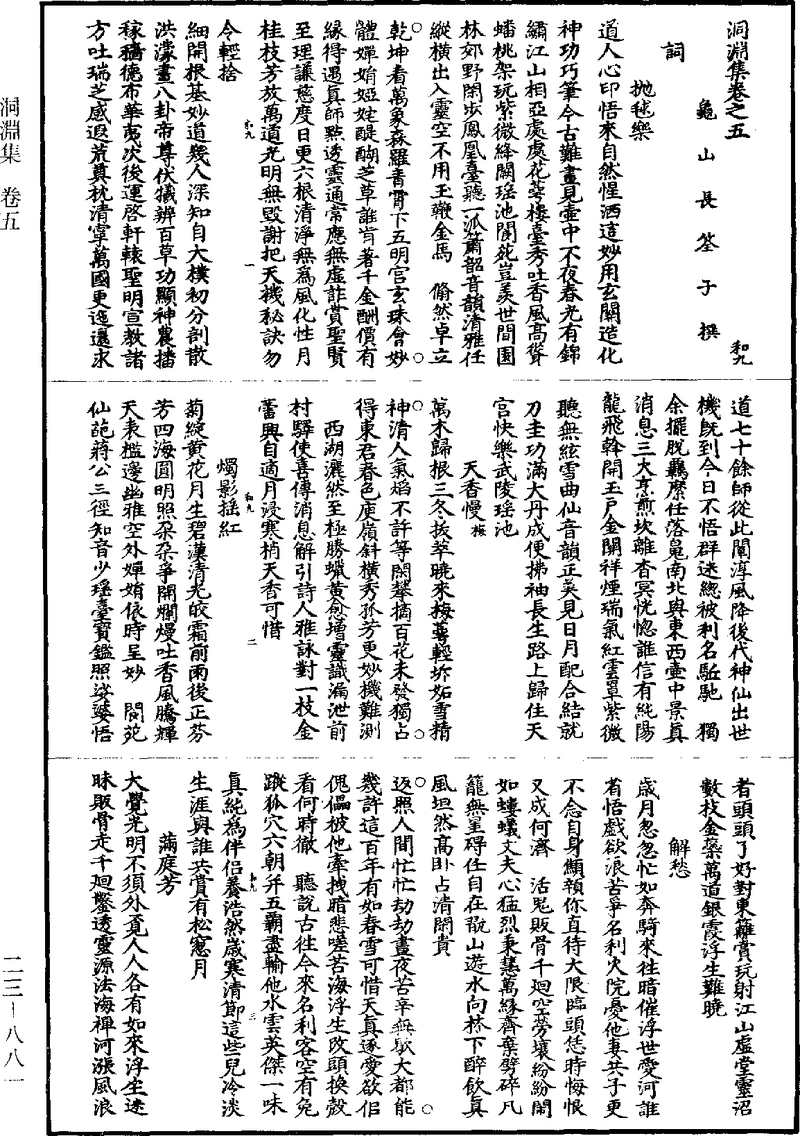 洞淵集卷之五
龜山長筌子撰 和九
詞
拋毬樂
道人心印悟來自然惺洒這妙用玄關造化
神功巧筆今古難畫見壺中不夜春光有錦
繡江山相亞處處花萼樓臺秀吐香風高聳
蟠桃架玩紫微絳闕瑤池閬苑豈羨世間園
林郊野閑步鳳凰臺聽一派簫韶音韻清雅任
縱橫出入靈空不用玉鞭金馬 翛然卓立
乾坤看萬象森羅青霄下五明宮玄珠會妙
體嬋娟婭姹醍醐芝草誰肯著千金酬價有
緣得遇真師點透靈通常應無虛詐賞聖賢
至理謙慈度日更六根清淨無為風化性月
桂枝芳放萬道光明無毀謝把天機秘訣勿
令輕捨
○
細開根基妙道幾人深知自大樸初分剖散
洪濛畫八卦帝尊伏犧辨百草功顯神農播
稼穡德布華夷次後運啓軒轅聖明宣教諸
方吐瑞芝感遐荒奠枕清寧萬國更迤邐求
道七十餘師從此闡淳風降後代神仙出世
機既到今日不悟群迷總被利名駈馳 獨
余擺脫羈縻任落魄南北與東西壺中景真
消息三大烹煎坎離杳冥恍惚誰信有純陽
龍飛斡開玉戶金關祥煙瑞氣紅雲罩紫微
聽無絃雪曲仙音韻正美見日月配合結就
刀圭功滿大丹成便拂袖長生路上歸住天
宮快樂武陵瑤池
天香慢 梅
萬木歸根三冬拔萃曉來梅萼輕坼妬雪精
神清人氣焰不許等閑攀摘百花未發獨占
得東君春色庾嶺斜橫秀孤芳更妙機難測
西湖灑然至極勝蠟黃愈增靈識漏泄前
村驛使喜傳消息解引詩人雅詠對一枝金
蕾興自適月浸寒梢天香可惜
燭影搖紅
菊綻黃花月生碧漢清光皎霜前雨後正芬
芳四海圓明照朶朶爭開爛熳吐香風騰輝
天表檻邊幽雅空外嬋娟依時呈妙 閬苑
仙葩蔣公三徑知音少瑤臺寶鑑照娑婆悟
者頭頭了好對東籬賞玩射江山虛堂靈沼
數枝金藥萬道銀霞浮生難曉
解愁
歲月怱怱忙如奔騎來往暗催浮世愛河誰
若悟戲欲浪苦爭名利火院憂他妻共子更
不念自身顦顇你直待大限臨頭恁時悔恨
又成何濟 活鬼販骨千廻空勞攘紛紛閙
如螻蟻丈夫心猛烈秉慧萬緣齊棄劈碎凡
籠無罣碍任自在翫山遊水向林下醉飲真
風坦然高卧占清閑貴
○
返照人間忙忙劫劫晝夜苦辛無歇大都能
幾許這百年有如春雪可惜天真逐愛欲佀
傀儡被他牽拽暗悲嗟苦海浮生改頭換殼
看何時徹 聽說古往今來名利客空有兔
蹤狐穴六朝并五霸盡輸他水雲英傑一味
真純為伴侶養浩然歲寒清節這些兒冷淡
生涯與誰共賞有松窻月
滿庭芳
大覺光明不須外覓人人各有如來浮生迷
昧販骨走千廻鑿透靈源法海禪河漲風浪
洞淵集 卷五
二三—八八一